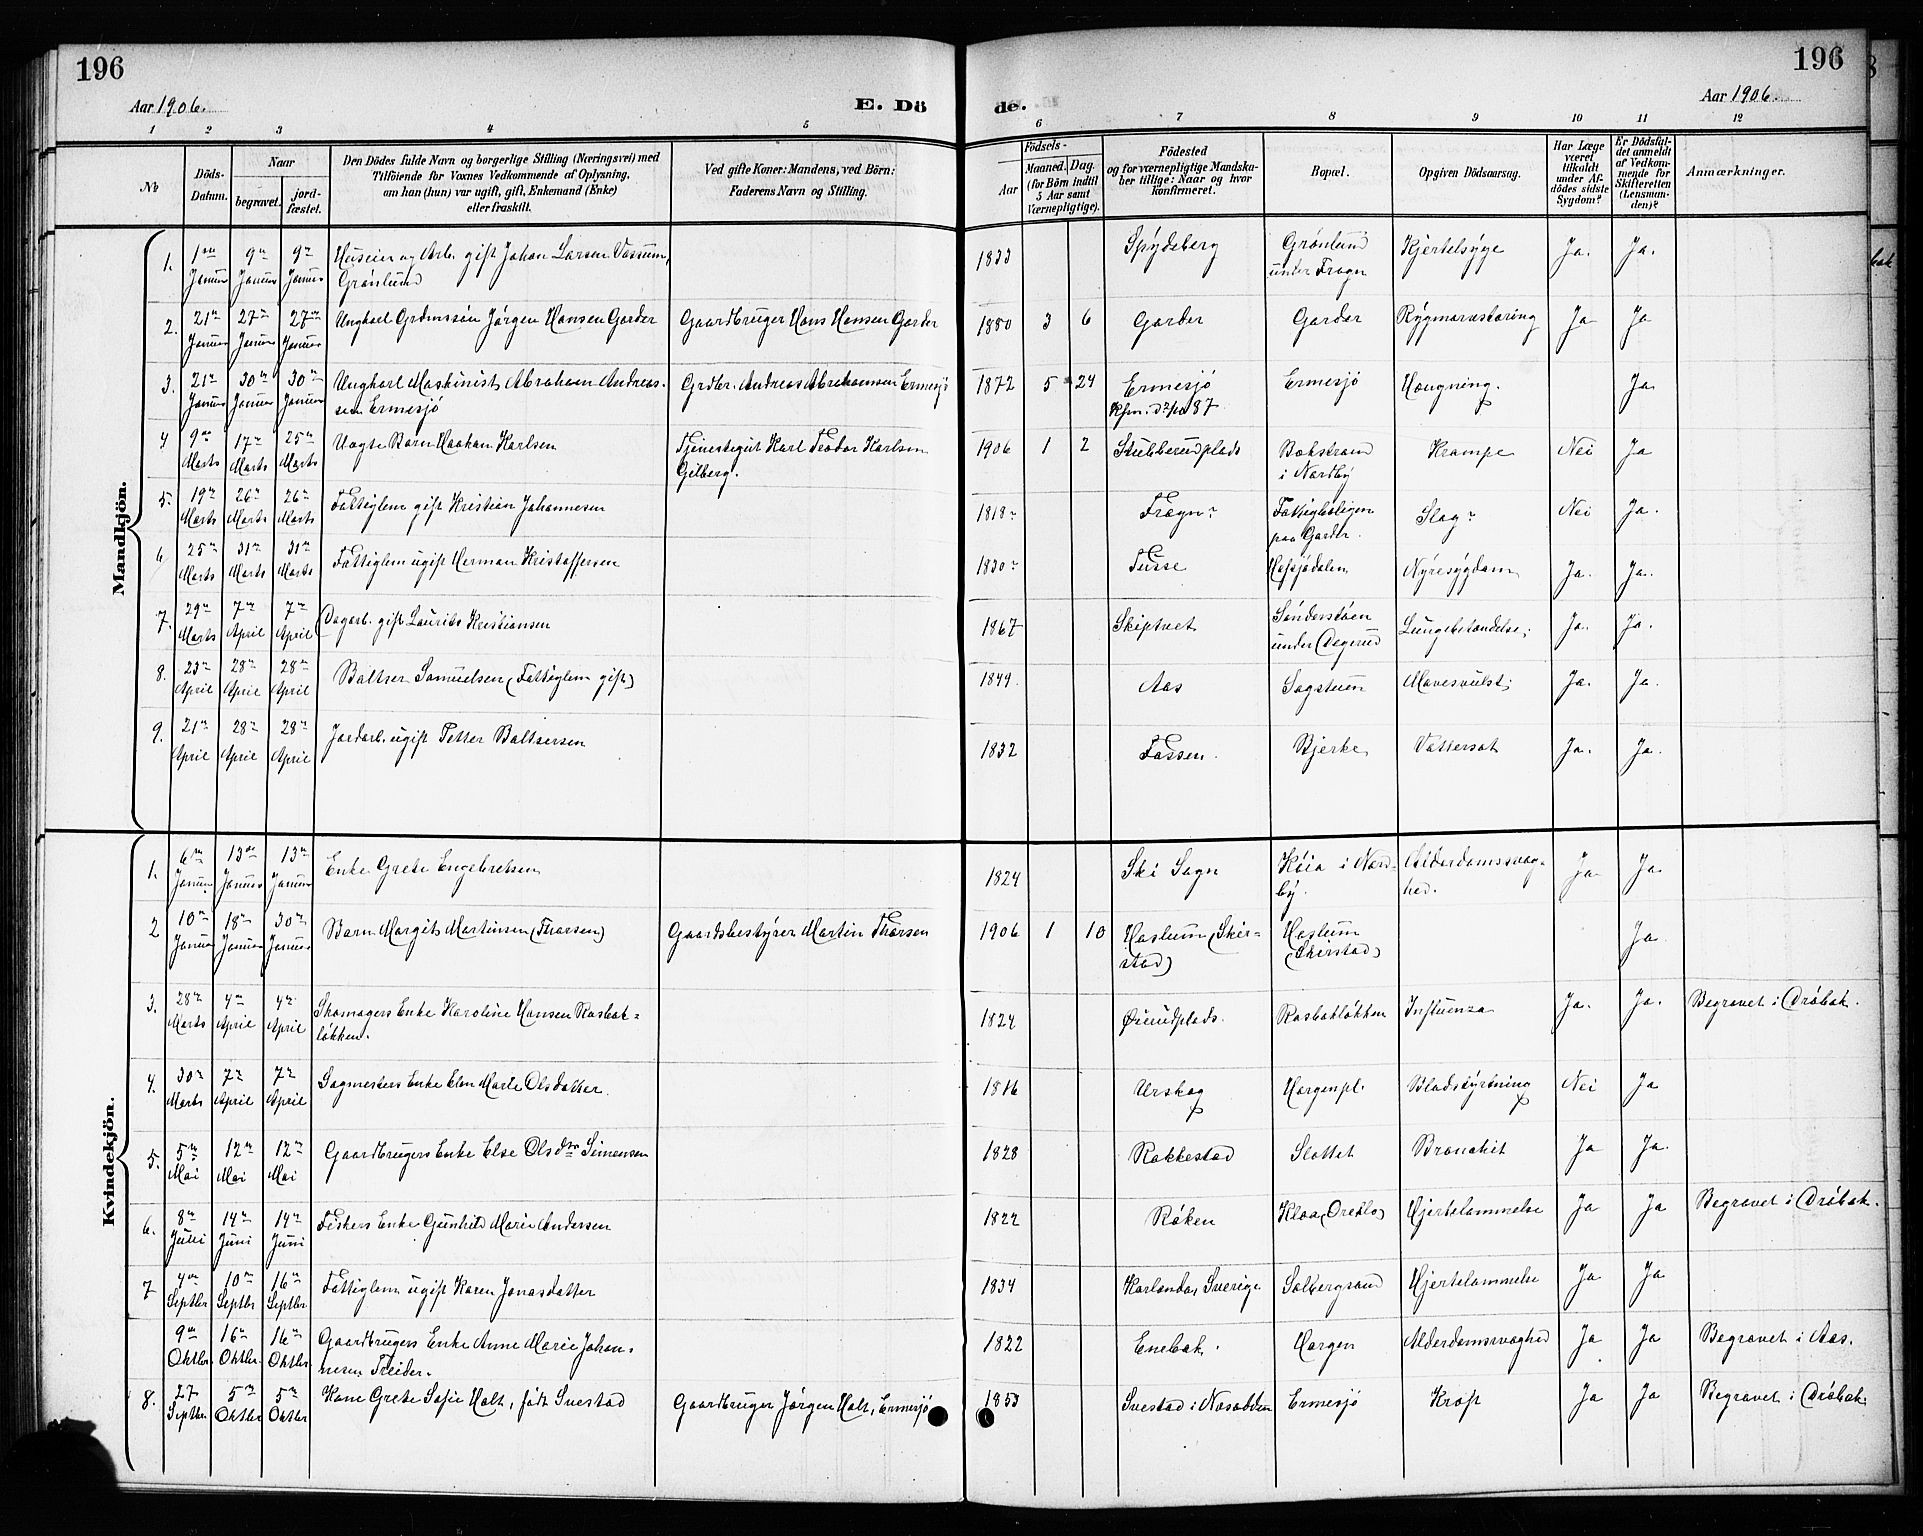 196
196
Aar 1906.
E. Dö
de.
Aar 1906.
1 2 3 4 5 6 7 8 9 10 11 12
No
Döds-Datum.
Naar
begravet.
jord-fæstet.
Den Dödes fulde Navn og borgerlige Stilling (Næringsvei) med
Tilföiende for Voxnes Vedkommende af Oplysning,
om han (hun) var ugift, gift, Enkemand (Enke)
eller fraskilt.
Ved gifte Koner: Mandens, ved Börn:
Faderens Navn og Stilling.
Födsels-
Aar
Maaned. Dag.
(for Börn indtil
5 Aar samt
Værnepligtige).
Födested
og for værnepligtige Mandska-
ber tillige: Naar og hvor
konfirmeret.
Bopæl.
Opgiven Dödsaarsag.
Har Læge
været
tilkaldt
under Af-
dödes sidste
Sygdom?
Er Dödsfal-
det anmeldt
af Vedkom-
mende for
Skifteretten
(Lensman-
den)?
Anmærkninger.
Mandkjön.
1. 1 Januar 9 Januar 9 Januar Huseier og Arb. gift Johan Larsen Vassum, Grønlund 1833 Spydeberg Grønlund under Frogn Kjertelsyge Ja. Ja.
2. 21 Januar 27 Januar 27 Januar Ungkarl Grdmssøn Jørgen Hansen Garder Gaardbruger Hans Hansen Garder 1880 3 6 Garder Garder Rygmarvstæring Ja Ja
3. 21 Januar 30 Januar 30 Januar Ungkarl Maskinist Abraham Andreas-
sen Ermesjø Grdbr. Andreas Abrahamsen Ermesjø 1872 5 24 Ermesjø Kfm. 87 Ermesjø Hængning. Ja
4 9 Marts 17 Marts 25 Marts Uægte Barn Haakon Karlsen Tjenestegut Karl Teodor Karlsen Gilberg. 1906 1 2 Stubberudplads Bokstrand i Nordby Krampe Nei Ja
5. 19 Marts 26 Marts 26 Marts Fattiglem gift Kristian Johannesen 1818 Frogn Fattigboligen paa Garder. Slag Nei Ja.
6. 25 Marts 31 Marts 31 Marts Fattiglem ugift Herman Kristoffersen 1830 Tusse Nyresygdom Ja. Ja.
7. 29 Marts 7 April 7 April Dagarb. gift Laurits Kristiansen 1867 Skiptvet Sønderstøen under Dægerud Lungebetændelse Ja. Ja.
8. 23 April 28 April 28 April Baltser Samuelsen (Fattiglem gift) 1849 Aas Sagstuen Mavesvulst Ja. Ja.
9. 21 April 28 April 28 April Jordarb. ugift Petter Baltsersen 1832 Fossen. Bjerke Vattersot Ja. Ja.
Kvindekjön.
1. 6 Januar 13 Januar 13 Januar Enke Grete Engebretsen 1824 Ski Sogn i Nord-
by. Alderdomssvag-
hed. Ja Ja.
2 10 Januar 18 Januar 30 Januar Barn Margit Martinsen (Thorsen) Gaardsbestyrer Martin Thorsen 1906 1 10 Haslum (Skir-
stad) Haslum (Skirstad) Ja
3. 28 Marts 4 April 4 April Skomagers Enke Karoline Hansen Rasbak-
løkken. 1824 Øierudplads. Rasbakløkken Influenza Ja. Ja. Begravet i Drøbak.
4. 30 Marts 7 April 7 April Sagmesters Enke Elen Marie Olsdatter. 1816 Urskog Horgenpl. Blodstyrtning Nei Ja
5. 5 Mai 12 Mai 12 Mai Gaardbrugers Enke Else Olsdtr Simensen 1828 Rakkestad Slottet Bronchit Ja Ja.
6. 8 Juni 14 Juni 14 Juni Fiskers Enke Gunhild Marie Andersen 1822 Røken Kloa (Oredlo) Hjertelammelse Ja Ja Begravet i Drøbak.
7 4 Septbr 10 Septbr 16 Septbr. Fattiglem ugift Karen Jonasdatter 1834 Karlanda, Sverige Solbergsund Hjertelammelse Ja Ja
9 Oktbr. 16 Oktbr. 16 Oktbr. Gaardbrugers Enke Anne Marie Johan-
nesen Treider. 1822 Enebak. Horgen Alderdomssvaghed Ja Ja Begravet i Aas.
8. 27 Septbr. 5 Oktbr 5 Oktbr Kone Grete Sofie Holt, født Svestad Gaardbruger Jørgen Holt, Ermesjø 1853 Svestad i Nesodden Ermesjø Kræft Ja Ja Begravet i Drøbak.